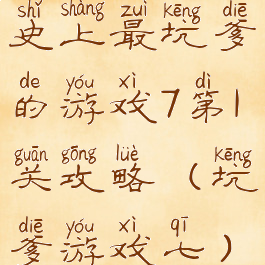 shǐ shàng zuì kēng diē
史上最坑爹
de yóu xì dì
的游戏7第1
guān gōng lüè kēng
关攻略（坑
diē yóu xì qī
爹游戏七）